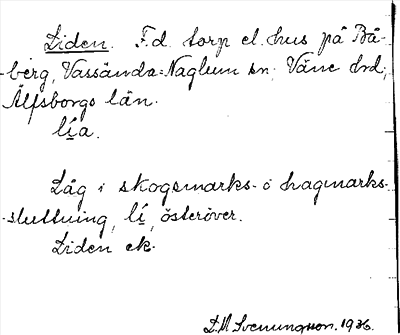 Liden. F.d. torp el. hus på Bå-
berg, Vassända-Naglum sn, Väne hrd,
Älfsborgs län.
lía.
Låg i skogsmarks- o hagmarks-
sluttning, lí, österöver.
Liden ek.
D.M. Svenungsson. 1936.